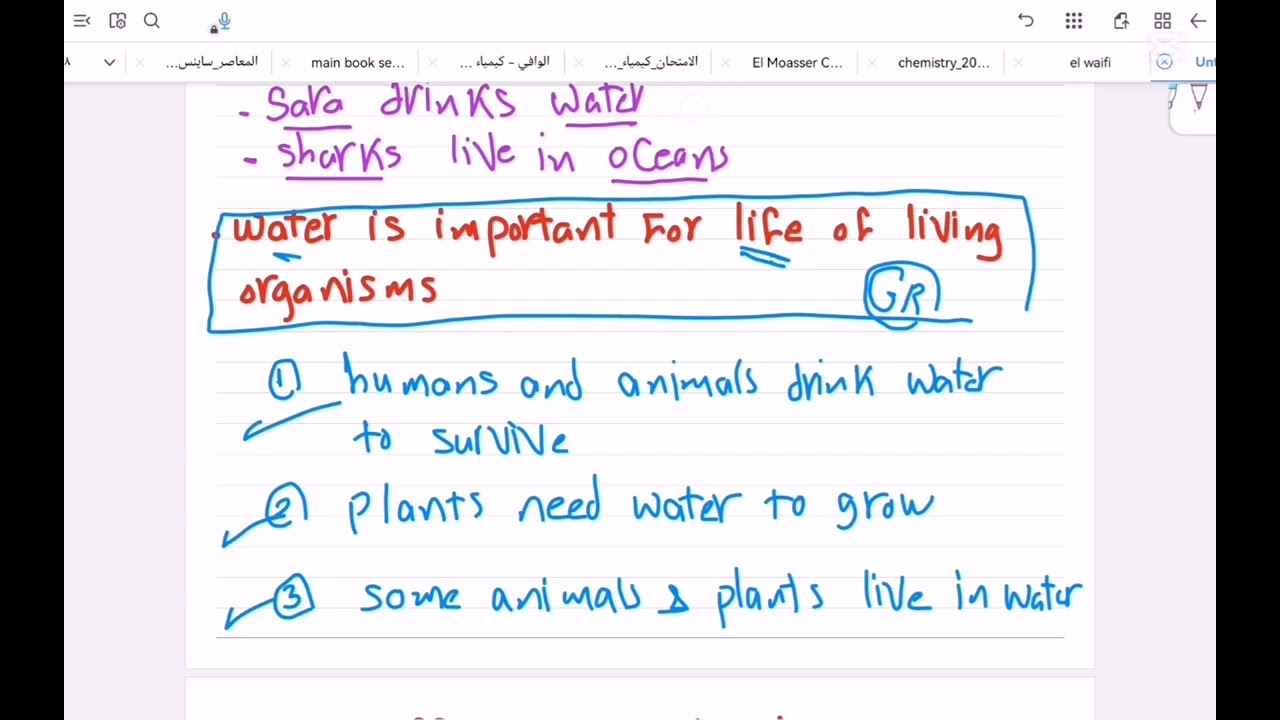 ٨
المعاصر_ساينس...
main book se...
الوافي - كيمياء ...
الامتحان_كيمياء_...
El Moasser C...
chemistry_20...
el waifi
Unt
. Sara drinks water
- sharks live in oceans
. water is important for life of living
organisms
GR
① humans and animals drink water
to survive
② plants need water to grow
③ some animals & plants live in water